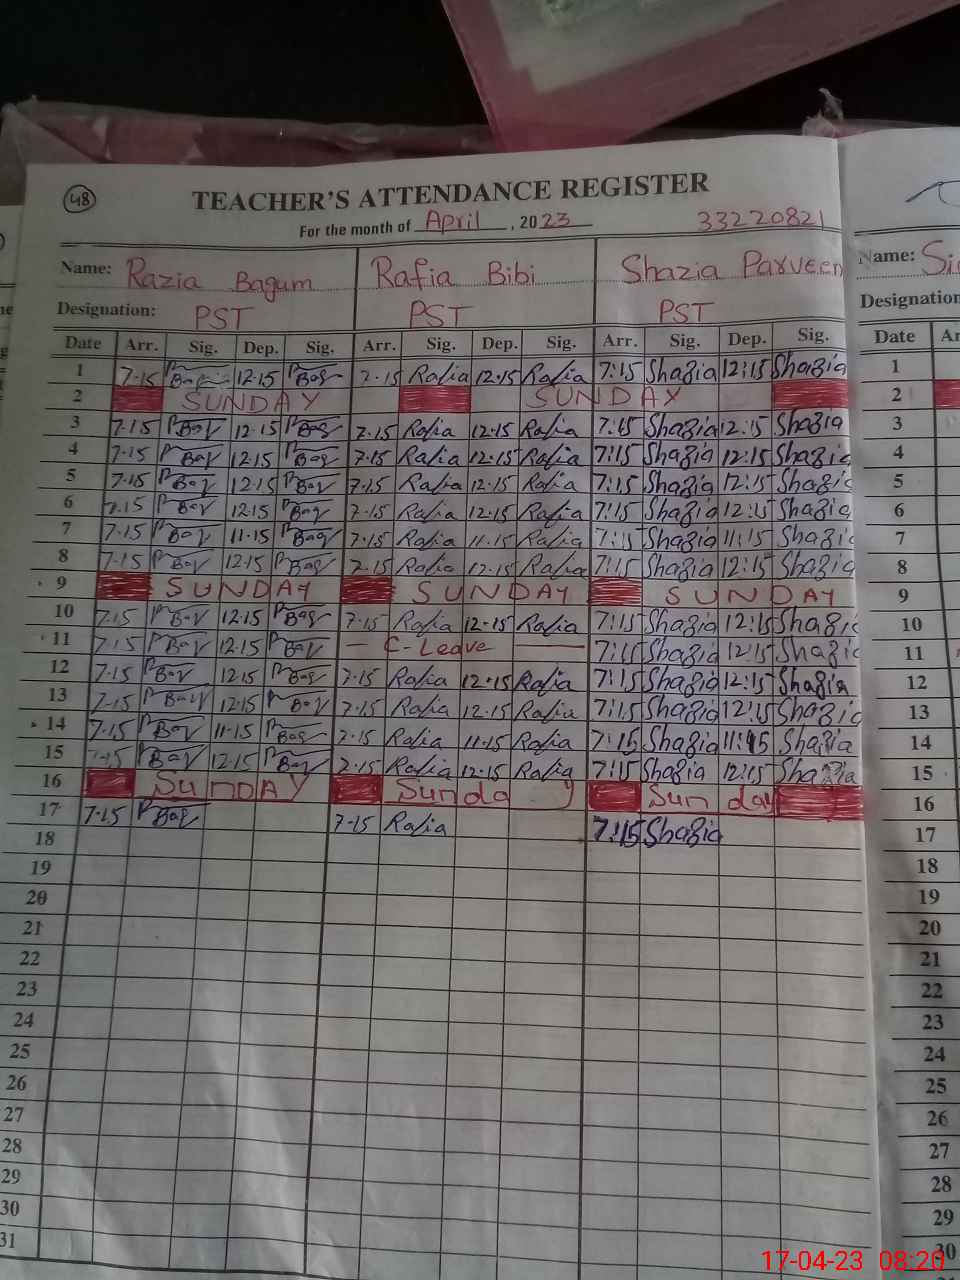 48
TEACHER'S ATTENDANCE REGISTER
For the month of April, 2023 33220821
Name: Razia Bagum Rafia Bibi Shazia Parveen Name:
Designation: PST PST PST Designation
Date Arr. Sig. Dep. Sig. Arr. Sig. Dep. Sig. Arr. Sig. Dep. Sig. Date
1 7-15 12-15 7-15 Rafia 12-15 Rafia 7:15 Shazia 12:15 Shazia 1
2 SUNDAY SUNDAY 2
3 7-15 12-15 7-15 Rafia 12-15 Rafia 7:15 Shazia 12:15 Shazia 3
4 7-15 12-15 7-15 Rafia 12-15 Rafia 7:15 Shazia 12:15 Shazia 4
5 7-15 12-15 7-15 Rafia 12-15 Rafia 7:15 Shazia 12:15 Shazia 5
6 7-15 12-15 7-15 Rafia 12-15 Rafia 7:15 Shazia 12:15 Shazia 6
7 7-15 11-15 7-15 Rafia 11-15 Rafia 7:15 Shazia 11:15 Shazia 7
8 7-15 12-15 7-15 Rafia 12-15 Rafia 7:15 Shazia 12:15 Shazia 8
9 SUNDAY SUNDAY SUNDAY 9
10 7-15 12-15 7-15 Rafia 12-15 Rafia 7:15 Shazia 12:15 Shazia 10
11 7-15 12-15 — C-Leave — 7:15 Shazia 12:15 Shazia 11
12 7-15 12-15 7-15 Rafia 12-15 Rafia 7:15 Shazia 12:15 Shazia 12
13 7-15 12-15 7-15 Rafia 12-15 Rafia 7:15 Shazia 12:15 Shazia 13
14 7-15 11-15 7-15 Rafia 11-15 Rafia 7:15 Shazia 11:15 Shazia 14
15 7-15 12-15 7-15 Rafia 12-15 Rafia 7:15 Shazia 12:15 Shazia 15
16 SunDAY Sunday Sunday 16
17 7-15 7-15 Rafia 7:15 Shazia 17
18 18
19 19
20 20
21 21
22 22
23 23
24 24
25 25
26 26
27 27
28 28
29 29
30 30
31
17-04-23 08:20